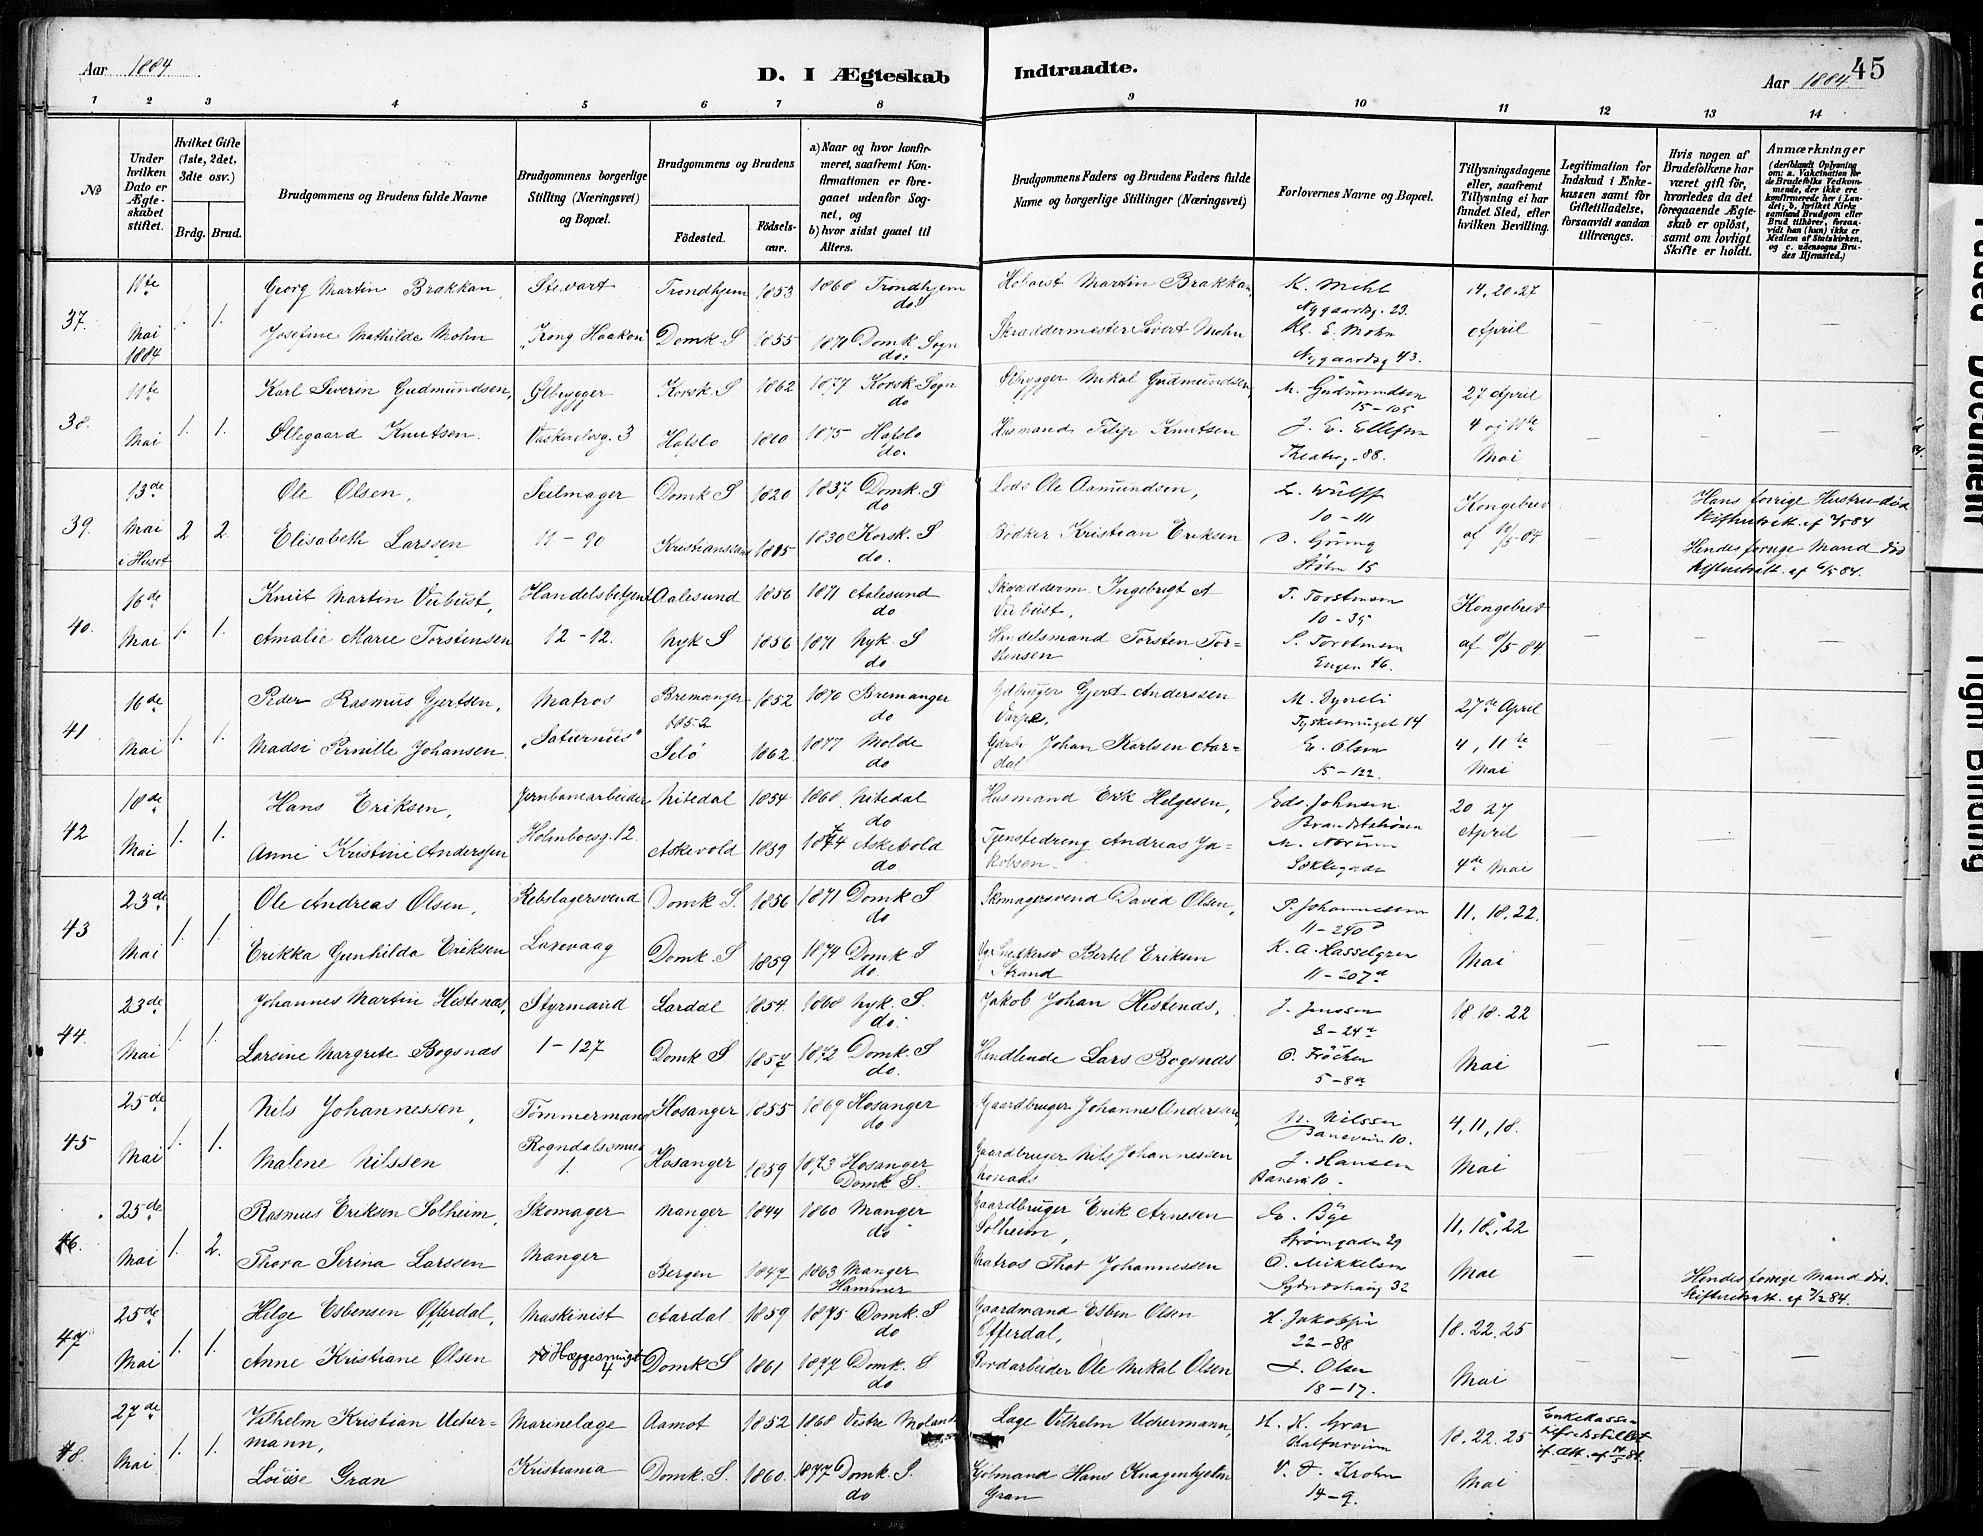 Aar 1884
D. I Ægteskab Indtraadte.
Aar 1884. 45
1 2 3 4 5 6 7 8 9 10 11 12 13 14
No
Under hvilken Dato er Ægteskabet stiftet.
Hvilket Gifte (1ste, 2det, 3die osv.)
Brdg. Brud.
Brudgommens og Brudens fulde Navne
Brudgommens borgerlige Stilling (Næringsvei) og Bopæl.
Brudgommens og Brudens
Fødested.
Fødselsaar.
a) Naar og hvor konfirmeret, saafremt Konfirmationen er foregaaet udenfor Sognet, og
b) hvor sidst gaaet til Alters.
Brudgommens Faders og Brudens Faders fulde Navne og borgerlige Stillinger (Næringsvei)
Forlovernes Navne og Bopæl.
Tillysningsdagene eller, saafremt Tillysning ei har fundet Sted, efter hvilken Bevilling.
Legitimation for Indskud i Enkekassen samt for Giftetilladelse, forsaavidt saadan tiltrænges.
Hvis nogen af Brudefolkene har været gift før, hvorledes da det foregaaende Ægteskab er opløst, samt om lovligt Skifte er holdt.
Anmærkninger
(deriblandt Oplysning om: a. Vakcination for de Brudefolks Vedkommende, der ikke ere konfirmerede her i Landet; b. hvilket Kirkesamfund Brudgom eller Brud tilhører, forsaavidt han (hun) ikke er Medlem af Statskirken, og c. udensogns Brudes Hjemsted.)
37. 11te Mai 1884 1. 1.
Georg Martin Brakkan, Stuart Trondhjem 1853 1868 Trondhjem do. Martin Brakkan, K. Mehl Nygaardsg. 23. 14, 20, 27
Josefine Mathilde Mohn "Kong Haakon" Domk. S 1855 1870 Domk Sogn do. Skræddermester Sivert Mohn Kl. E. Mohn Nygaardsg 43. April
38. 11te Mai 1. 1.
Karl Severin Gudmundsen, Ølbrygger Korsk. S 1862 1877 Korsk Sogn do Ølbrygger Mikal Gudmundsen, M. Gudmundsen 15-105 27 April
Øllegaard Knutsen. Vaskerelvsg. 3 Hafslo 1860 1875 Hafslo do. Husmand Filip Knutsen J. E. Ellefsen Theaterg. 88. 4 og 11te Mai
39. 13de Mai i Huset 2 2.
Ole Olsen, Seilmager Domk S 1820 1837 Domk. S do Lods Ole Aamundsen, L. Wulff 10-111 Kongebrev Hans forrige Hustru død
Elisabeth Larssen 11-90 Kristianssand 1815 1830 Korsk. S do. Bødker Kristian Eriksen Støbn 15 Hendes forrige Mand død
40. 16de Mai 1. 1.
Knut Martin Viebust, Handelsbetjent Aalesund 1856 1871 Aalesund do Skræderm. Ingebrigt A Viebust, T. Torstensen 10-35 Kongebrev
Amalie Marie Torstensen 12-12. Nyk S 1856 1871 Nyk S do Handelsmand Torsten Torstensen S. Torstensen Engen 46. af 9/5 84
41 16de Mai 1. 1.
Peder Rasmus Gjertsen, Matros Bremanger 1852 1852 1870 Bremanger do Gdbruger Gjert Anderssen Varpe, M. Dyveli Tyskesmuget 14 27de April
Madsi Pernille Johansen "Saturnus" Selø 1862. 1877 Molde do Johan Karlsen Aardal E. Olsen 15-122. 4, 11te Mai
42 18de Mai 1. 1.
Hans Eriksen, Jernbanearbeider Nitedal 1854 1868 Nitedal do Husmand Erik Helgesen, Eds. Johnsen Brandstationen 20 27 April
Anne Kristine Anderssen Holmboesg. 12. Askevold 1859 1874 Askevold do. Tjenstedreng Andreas Jakobsen. M. Norum 4de Mai
43 23de Mai 1. 1.
Ole Andreas Olsen, Rebslagersvend Domk S. 1856 1871 Domk S do Skomagersvend David Olsen, P. Johannessen 11-240d 11, 18, 22.
Erikka Gunhilda Eriksen Laxevaag Domk. S 1859 1874 Domk S do. Snedkersv Bertel Eriksen Strand K. A. Hasselgren 11-207a Mai
44. 23de Mai 1. 1.
Johannes Martin Hestenæs, Styrmand Lærdal 1854. 1868 Nyk. S. do. Jakob Johan Hestenæs, J. Jenssen 8-24a 18. 18. 22
Larsine Margrete Bogsnæs 1-127 Domk S 1857 1872 Domk. S do. Handlende Lars Bogsnæs O. Frøchen 5-8a Mai
45 25de Mai 1. 1.
Nils Johannessen, Tømmermand Hosanger 1855 1869 Hosanger do Gaardbruger Johannes Andersen, N. Nilssen Baneveien 10. 4, 11, 18.
Malene Nilssen Rogndalssmug 1. Hosanger 1859 1873 Hosanger Domk S. Gaardbruger Nils Johannessen J. Hansen 10. Mai
46. 25de Mai 1. 2.
Rasmus Eriksen Solheim, Skomager Manger 1844 1860 Manger do Gaardbruger Erik Arnesen Solheim, E. Bøe Strømgaden 29 11, 18, 22
Thora Serina Larssen Manger Bergen 1847 1863 Manger Hammer Matros Thor Johannessen O. Mikkelsen Sydneshaug 32 Mai Hendes forrige Mand død.
47 25de Mai 1. 1.
Helge Esbensen Offerdal, Maskinist Aardal 1859 1875 Domk. S do Gaardmand Esben Olsen Offerdal, H. Jakobsen 22-88 18. 22. 25
Anne Kristiane Olsen Hæggesmuget 4 Domk S 1861 1877 Domk. S do Bordarbeider Ole Mikal Olsen J. Olsen 18-17. Mai
48. 27de Mai 1. 1.
Vilhelm Kristian Uchermann, Marinelæge Aamot 1852 1868 Vestre Moland Læge Vilhelm Uchermann, H. K. Gran Kalfarveien 18. 22. 25
Louise Gran Kristiania Domk. S. 1860. 1877 Domk. S. do Kjøbmand Hans Knagenhjelm Gran V. F. Krohn 14-9. Mai